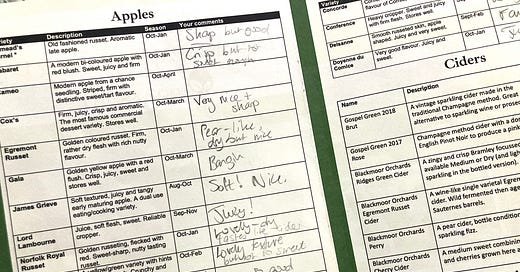 Apples
Variety Description Season Your comments
Old fashioned russet. Aromatic
Oct-Jan
Sharp but good
A modern bi-coloured apple with
red blush. Sweet, juicy and firm
Oct-Jan
Crisp but to
Modern apple from a chance
seedling. Striped, firm with
distinctive sweet/tart flavour.
Oct-April
Cox's
Firm, juicy, crisp and aromatic.
The most famous commercial
dessert variety. Stores well.
Oct-March
Very nice +
sharp
Egremont
Russet
Golden coloured russet. Firm,
rather dry flesh with rich nutty
flavour.
Oct-Jan
Pear-like,
dry but nice
Gala
Golden yellow apple with a red
flush. Crisp, juicy, sweet and
stores well.
Oct-March
James Grieve
Soft textured, juicy and tangy
early maturing apple. A dual use
eating/cooking variety.
Aug-Oct
Soft. Nice.
Lord
Lambourne
Juice, soft flesh, sweet. Reliable
cropper.
Sep-Nov
Juicy.
Norfolk Royal
Russet
Golden russeting, flecked with
red. Sweet-sharp, nutty tasting
Oct-Jan
Lovely - dry
Oct-Feb
yellow/green variety with hints
Crunchy and
good
Variety
Concorde
Conference
Heavy cropper. Sweet and juicy
with firm flesh. Stores well.
Delsanne
Smooth russeted skin, apple
shaped. Juicy and very sweet.
Sept-Feb
Doyenne du
Comice
Very good flavour. Juicy and
sweet.
Oct-Jan
Ciders
Name Description
Gospel Green 2018
Brut
A vintage sparkling cider made in the
traditional Champagne method. Great
alternative to sparkling wine or prosec
Gospel Green 2017
Rose
Champagne method cider with a do
English Pinot Noir to produce a pin
Blackmoor Orchards
Ridges Green Cider
A zingy and crisp Bramley focussed
available Medium or Dry (and light
sparkling in the bottled version).
Blackmoor Orchards
Egremont Russet
Cider
A wine-like single varietal Egrem
cider. Wild fermented then age
Sauternes barrels.
Blackmoor Orchards
Perry
A pear cider, bottle condition
sparkling fizz.
Blackmoor Orchards
Cherry Cider
A medium sweet combination
and cherries grown here a